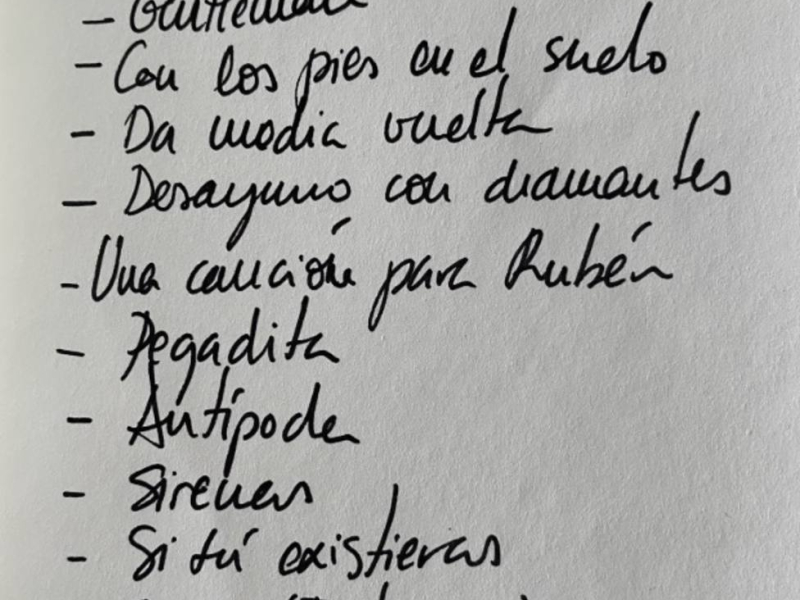 - Con los pies en el suelo
- Da media vuelta
- Desayuno con diamantes
- Una canción para Rubén
- Pegadita
- Antípoda
- Sirenas
- Si tú existieras